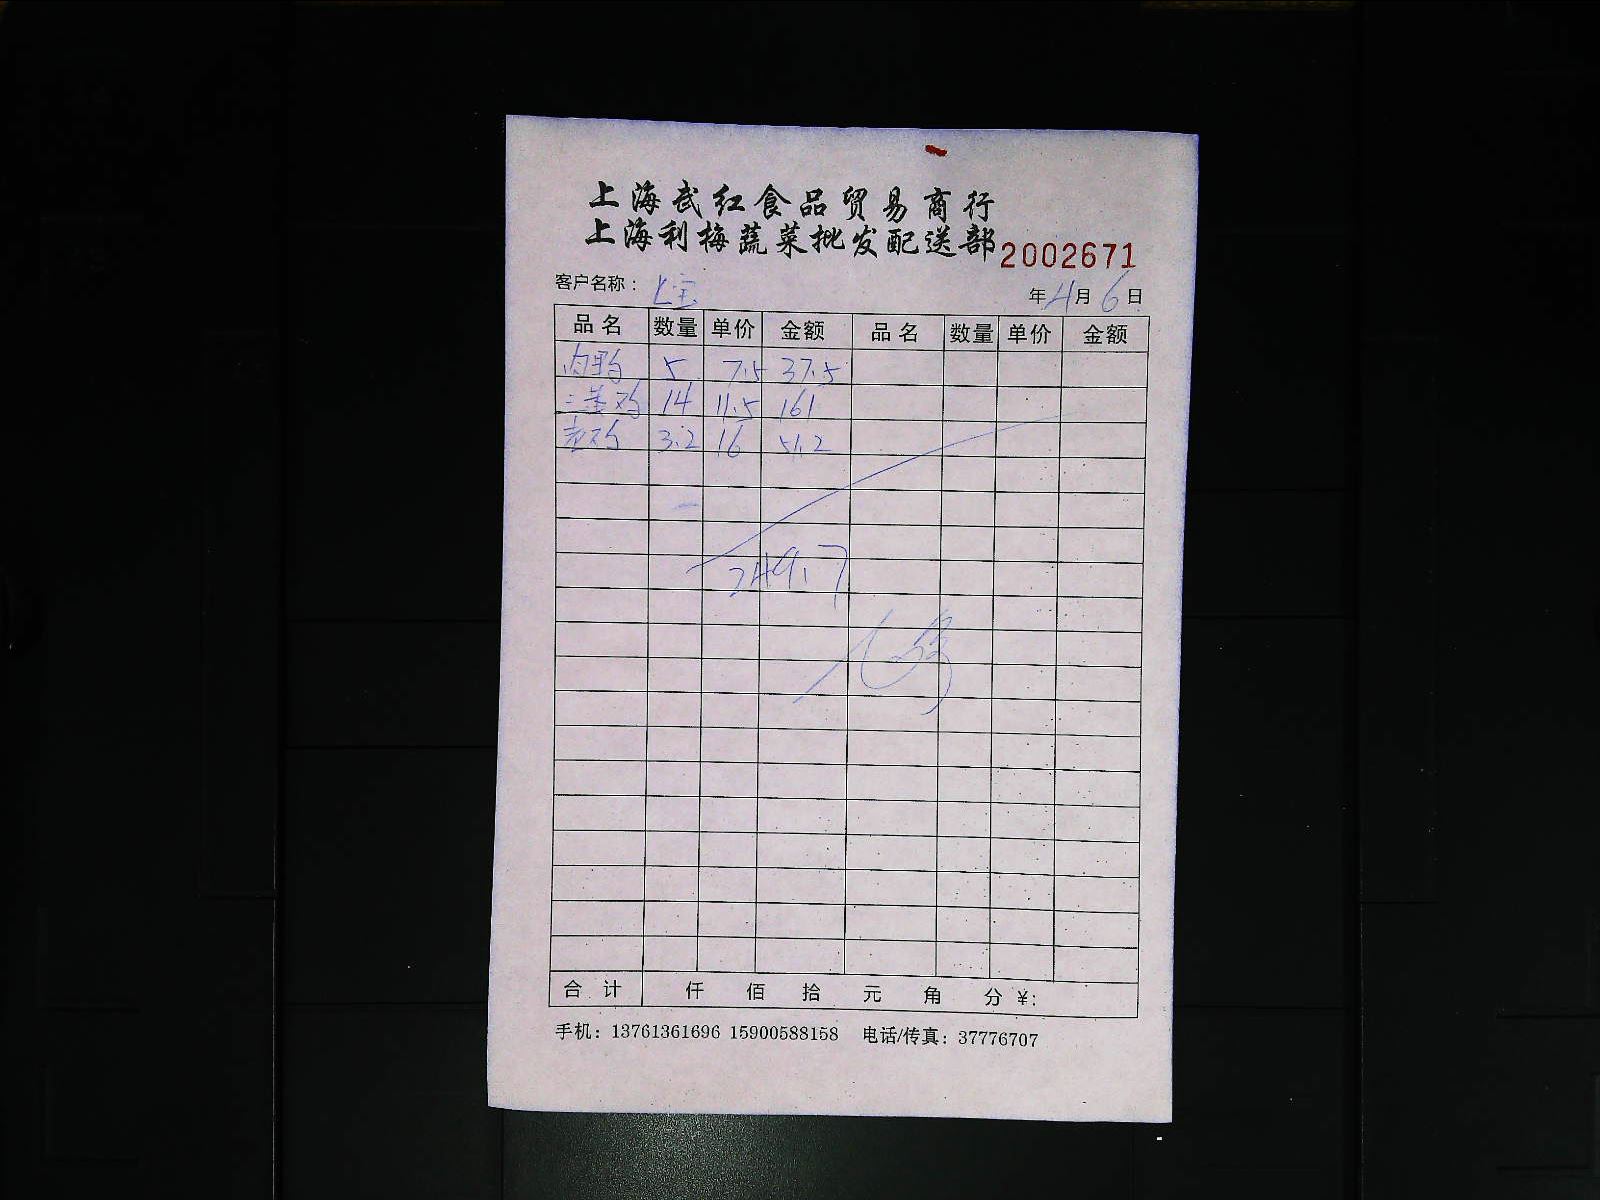 上海武红食品贸易商行
上海利梅蔬菜批发配送部 2002671
客户名称： 上宝 年 4月 6日
品名 数量 单价 金额 品名 数量 单价 金额
肉鸭 5 7.5 37.5
三黄鸡 14 11.5 161
老鸡 3.2 16 51.2
249.7
合计 仟 佰 拾 元 角 分 ¥:
手机：13761361696 15900588158 电话/传真：37776707